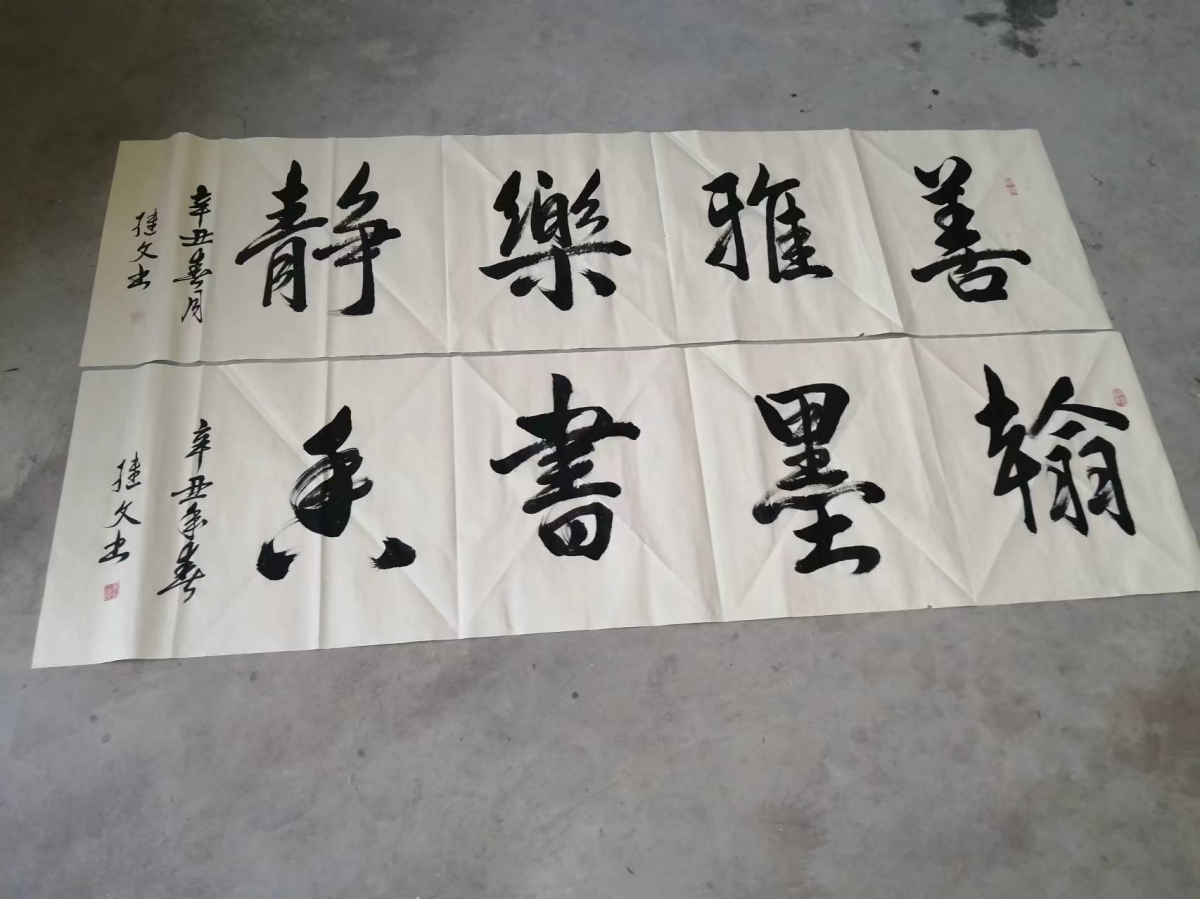 善雅樂靜
辛丑春月
文书
翰墨書香
辛丑年春
文书